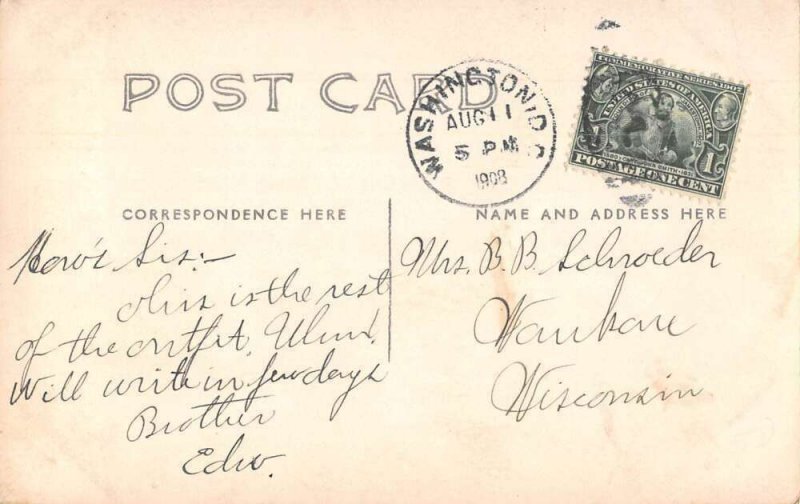 POST CARD
WASHINGTON, D.C.
AUG 11
5 PM
1908
COMMEMORATIVE SERIES 1907
UNITED STATES OF AMERICA
POSTAGE ONE CENT 1
CORRESPONDENCE HERE
NAME AND ADDRESS HERE
How's Sis:-
this is the rest
of the outfit,
Will write in few days
Brother
Edw.
Mrs. B. B. Schroeder
Waukau
Wisconsin